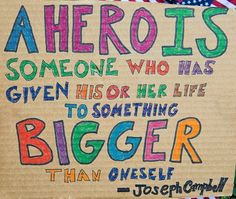 A HERO IS
SOMEONE WHO HAS
GIVEN HIS OR HER LIFE
TO SOMETHING
BIGGER
THAN ONESELF
—JOSEPH Campbell